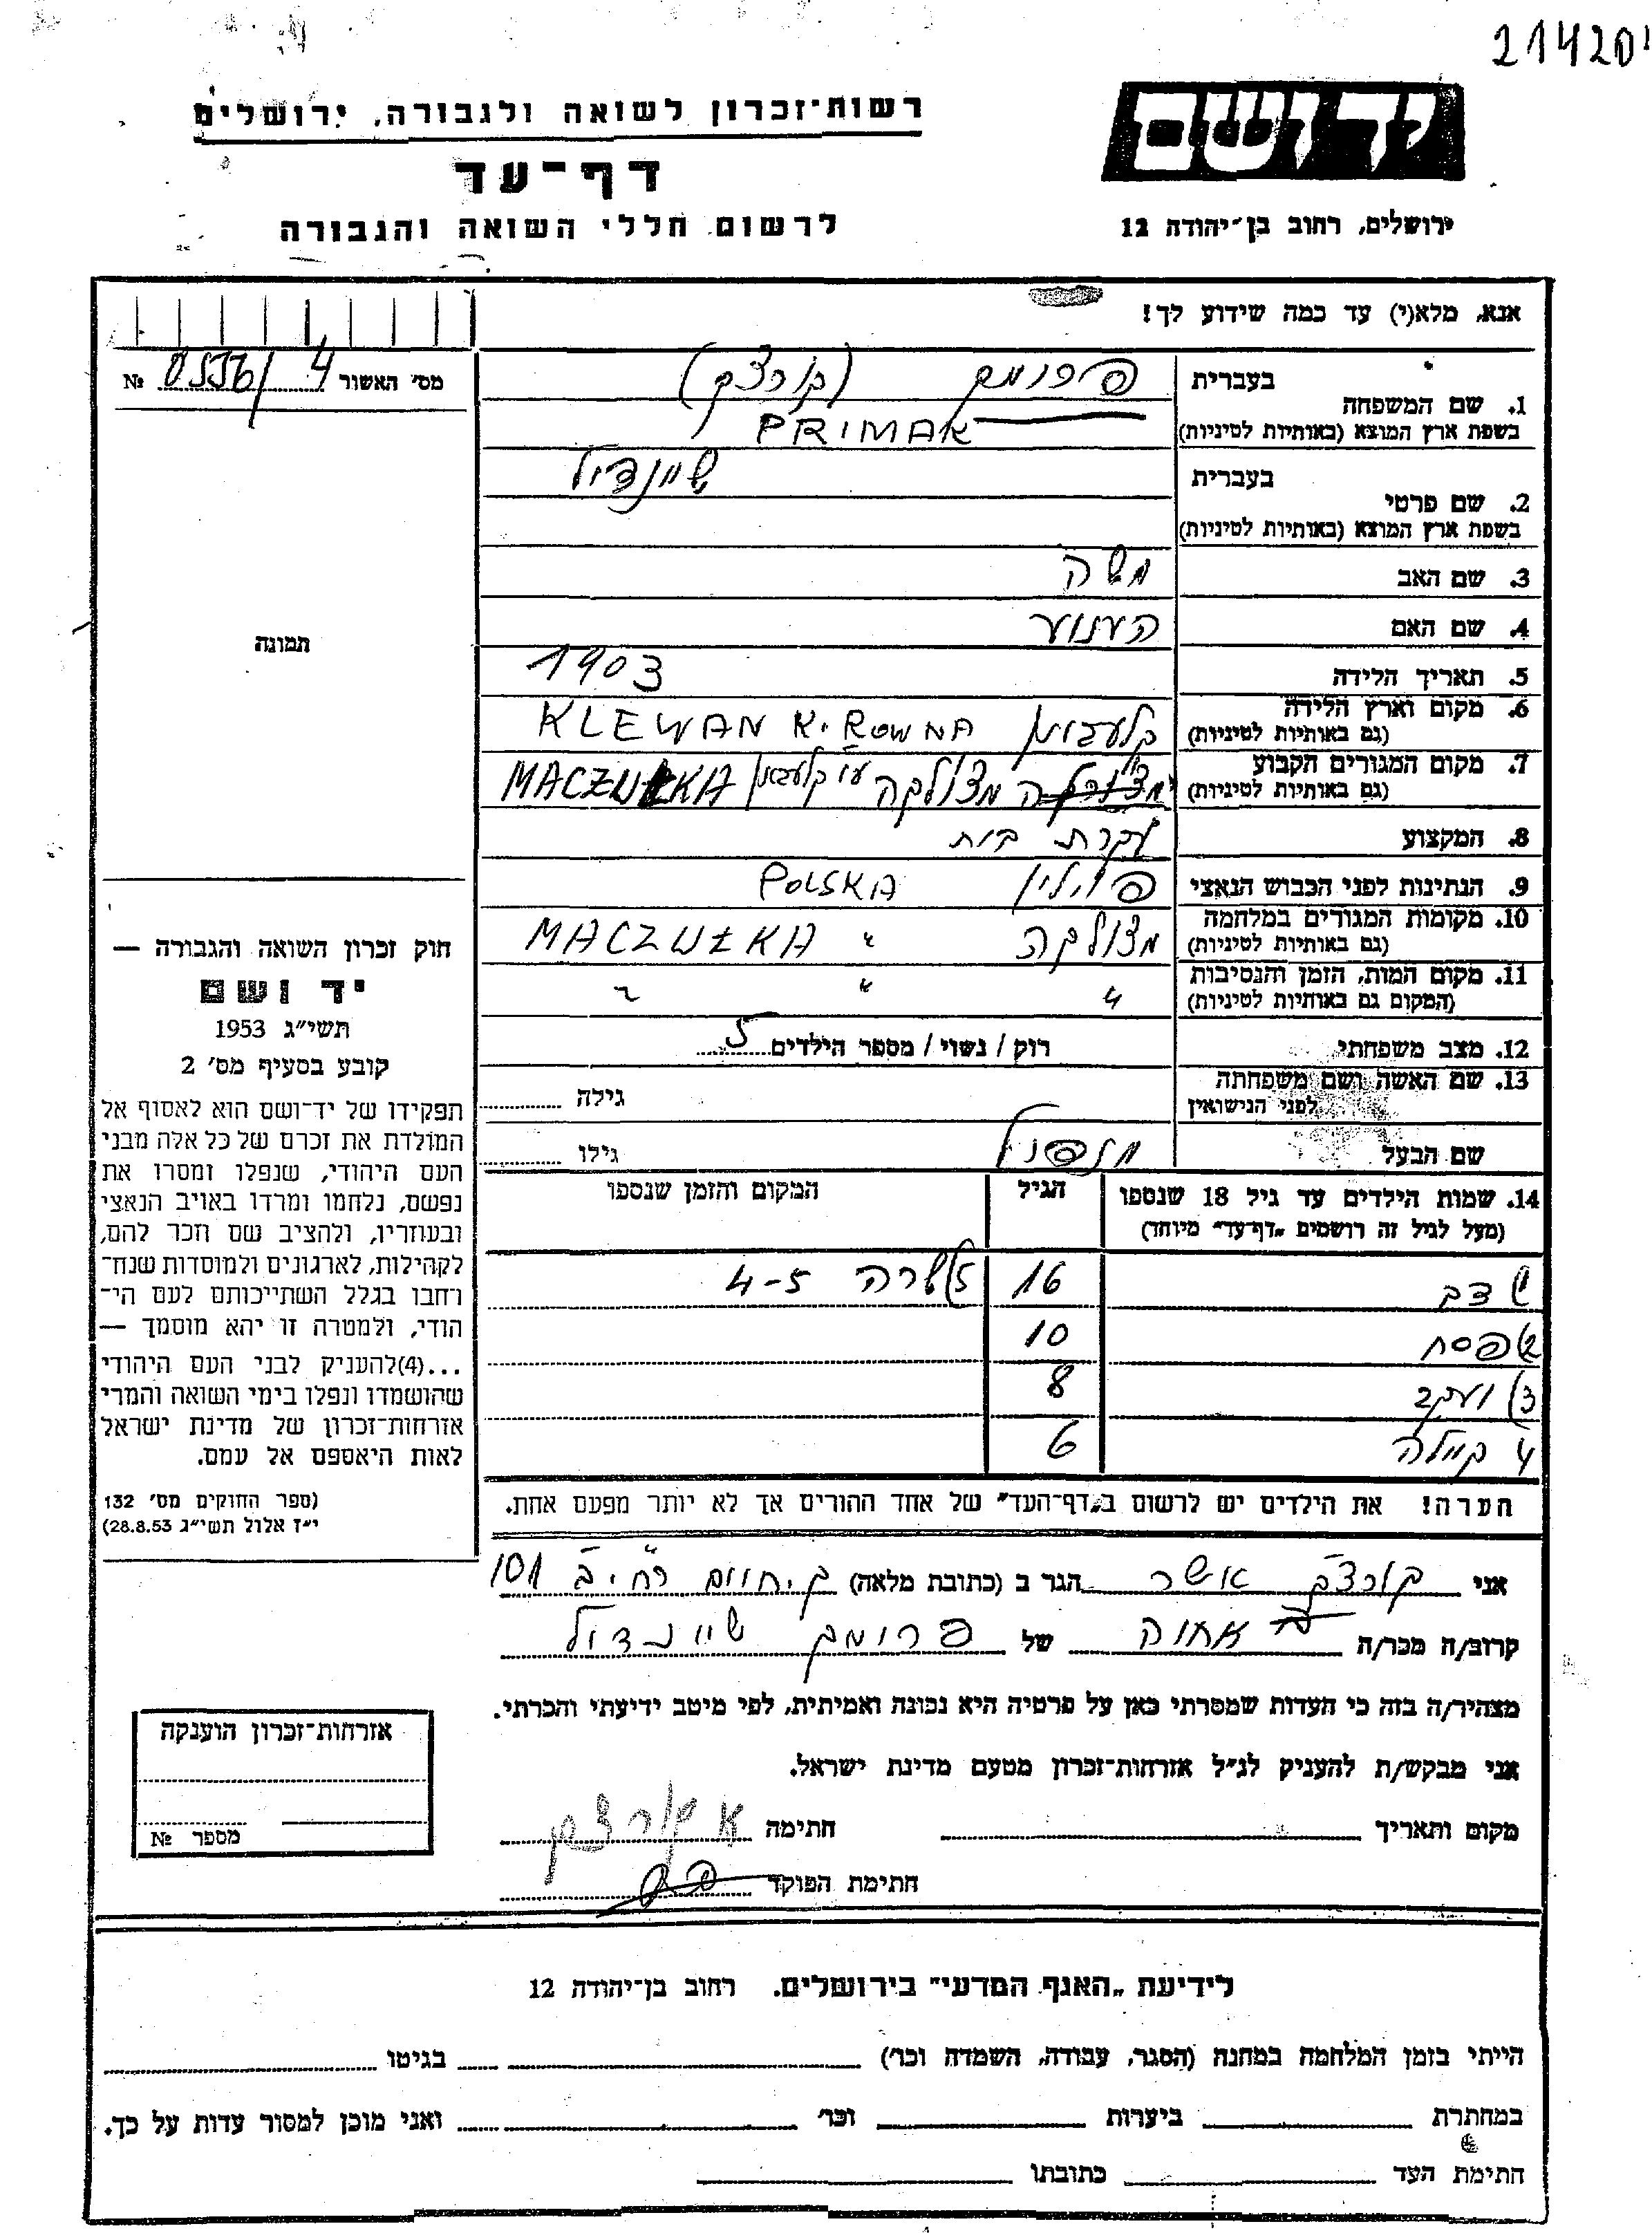 214201
רשות־זכרון לשואה ולגבורה, ירושלים
דף־עד
לרשום חללי השואה והגבורה
יד ושם
ירושלים, רחוב בן־יהודה 12
אנא, מלא(י) עד כמה שידוע לך!
מס׳ האשור 4 / № 0556
תמונה
חוק זכרון השואה והגבורה —
יד ושם
תשי״ג 1953
קובע בסעיף מס׳ 2
תפקידו של יד־ושם הוא לאסוף אל
המולדת את זכרם של כל אלה מבני
העם היהודי, שנפלו ומסרו את
נפשם, נלחמו ומרדו באויב הנאצי
ובעוזריו, ולהציב שם וזכר להם,
לקהילות, לארגונים ולמוסדות שנח־
רחבו בגלל השתייכותם לעם הי־
הודי, ולמטרה זו יהא מוסמך —
...(4)להעניק לבני העם היהודי
שהושמדו ונפלו בימי השואה והמרי
אזרחות־זכרון של מדינת ישראל
לאות היאספם אל עמם.
(ספר החוקים מס׳ 132
י״ז אלול תשי״ג 28.8.53)
1. שם המשפחה בעברית פרומק (קורצק)
בשפת ארץ המוצא (באותיות לטיניות) PRIMAK
2. שם פרטי בעברית שיינדיל
בשפת ארץ המוצא (באותיות לטיניות)
3. שם האב משה
4. שם האם
5. תאריך הלידה 1903
6. מקום וארץ הלידה (גם באותיות לטיניות) קלעבאן KLEWAN K. ROWNA
7. מקום המגורים הקבוע (גם באותיות לטיניות) מצולקה ע״י קלעבאן MACZUŁKA
8. המקצוע עקרת בית
9. הנתינות לפני הכבוש הנאצי פולין POLSKA
10. מקומות המגורים במלחמה (גם באותיות לטיניות) מצולקה " MACZUŁKA
11. מקום המות, הזמן והנסיבות (המקום גם באותיות לטיניות) " " "
12. מצב משפחתי רוק / נשוי / מספר הילדים 5
13. שם האשה ושם משפחתה לפני הנישואין גילה
שם הבעל גילו
14. שמות הילדים עד גיל 18 שנספו הגיל המקום והזמן שנספו
(מעל לגיל זה רושמים „דף־עד״ מיוחד)
16 4-5
פסח 10
3) יעקב 8
4 קיילה 6
הערה! את הילדים יש לרשום ב„דף־העד״ של אחד ההורים אך לא יותר מפעם אחת.
אני קורצק אשר הגר ב (כתובת מלאה) ק. חיים 101
קרוב/ה מכר/ה אחיה של פרומק שיינדיל
מצהיר/ה בזה כי העדות שמסרתי כאן על פרטיה היא נכונה ואמיתית, לפי מיטב ידיעתי והכרתי.
אני מבקש/ת להעניק לנ״ל אזרחות־זכרון מטעם מדינת ישראל.
מקום ותאריך חתימה א קורצק
חתימת הפוקד
אזרחות־זכרון הוענקה
מספר №
לידיעת „האגף המדעי״ בירושלים. רחוב בן־יהודה 12
הייתי בזמן המלחמה במחנה (הסגר, עבודה, השמדה וכר׳) בגיטו
במחתרת ביערות וכר׳ ואני מוכן למסור עדות על כך.
חתימת העד כתובתו